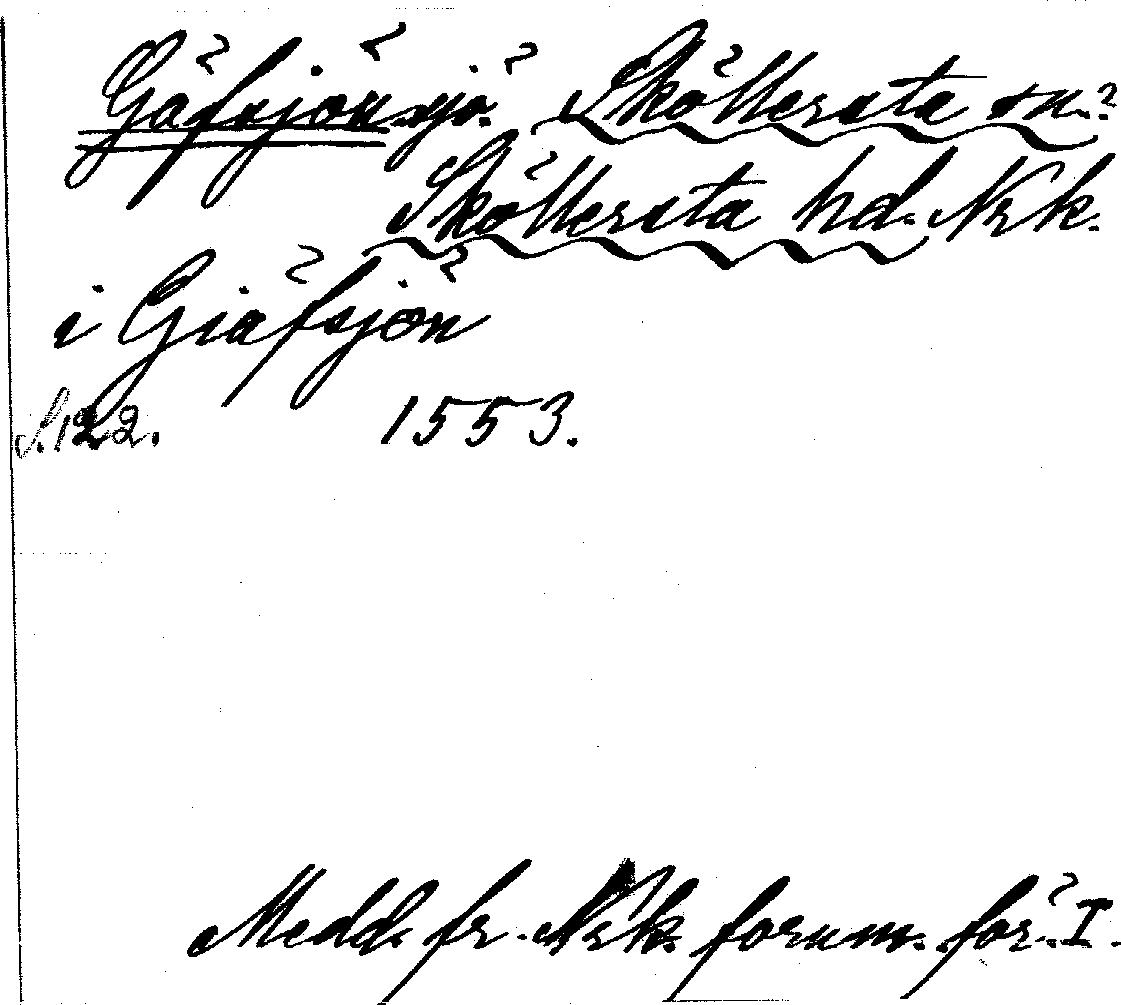 Gäfsjön sjö. Sköllersta sn.?
Sköllersta hd. Nrk.
i Giäfsjön
S. 122. 1553.
Medd. fr. Nrk. fornm. för. I.